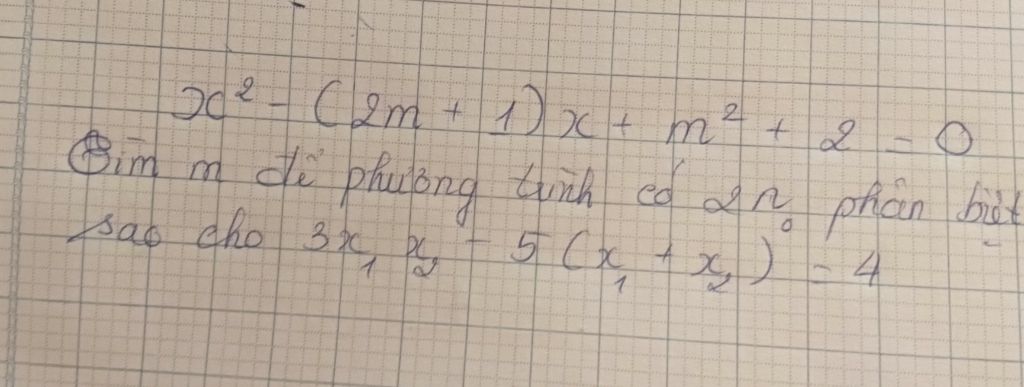 x² - (2m + 1)x + m² + 2 = 0
Tìm m để phương trình có 2 n₀ phân biệt
sao cho 3x₁x₂ - 5(x₁ + x₂) = 4